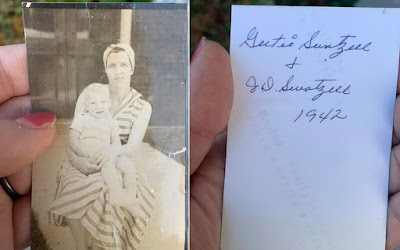 Gertie Swatzell
&
JD Swatzell
1942